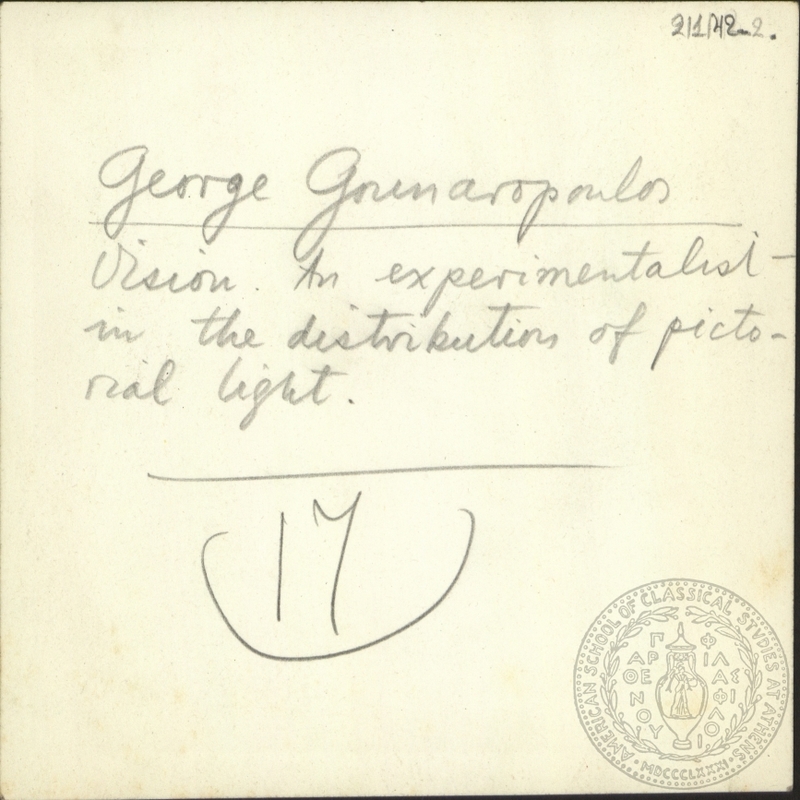 George Gounaropoulos
Vision. An experimentalist
in the distribution of picto-
rial light.
17
AMERICAN SCHOOL OF CLASSICAL STUDIES AT ATHENS
ΠΑΡΘΕΝΟΥ ΦΙΛΑΣ ΦΙΛΙΟ
MDCCCLXXXI